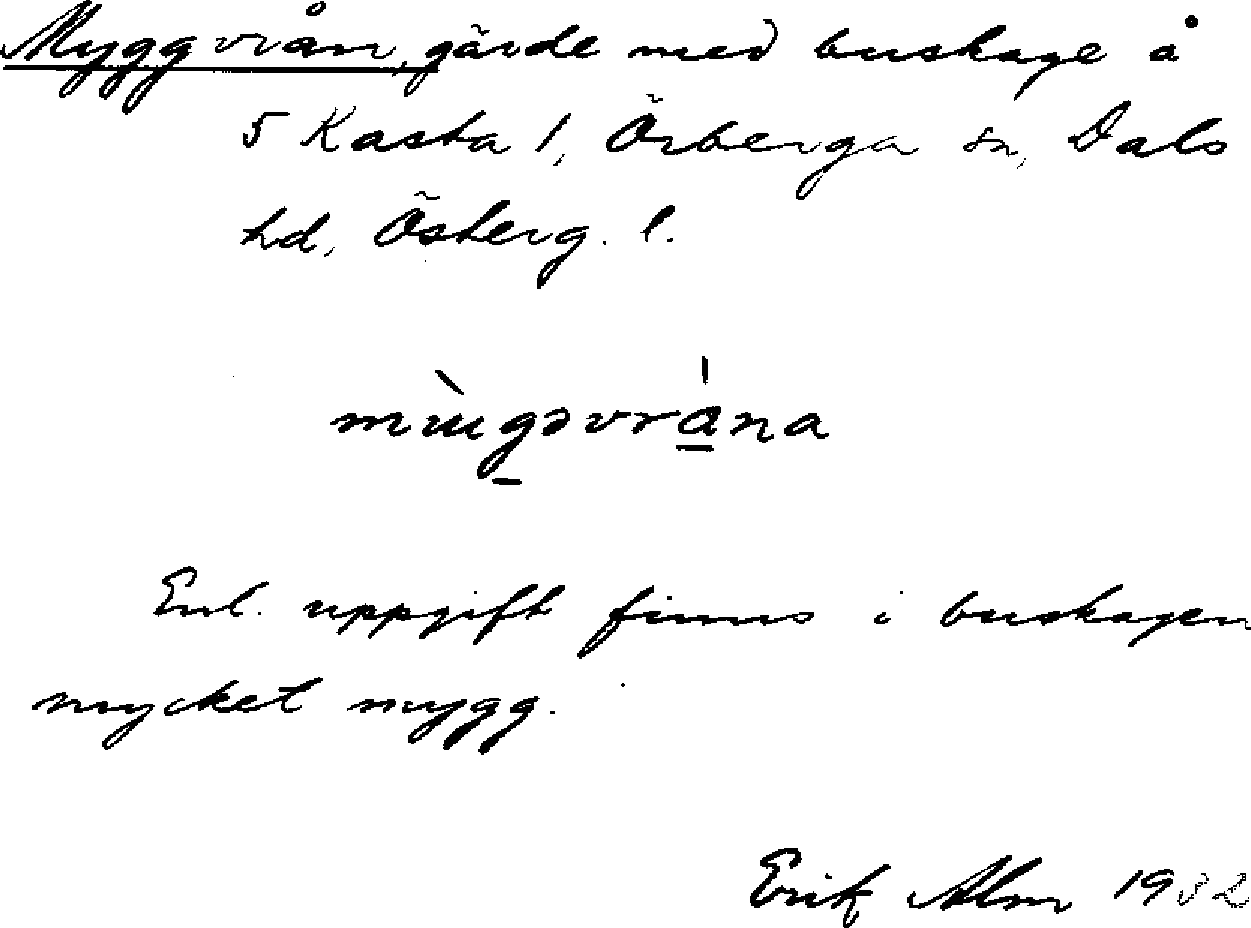 Myggvrån, gärde med buskage å
5 Kasta 1, Örberga sn, Dals
hd, Österg. l.
Enl. uppgift finns i buskagen
mycket mygg.
Erik Alm 1932